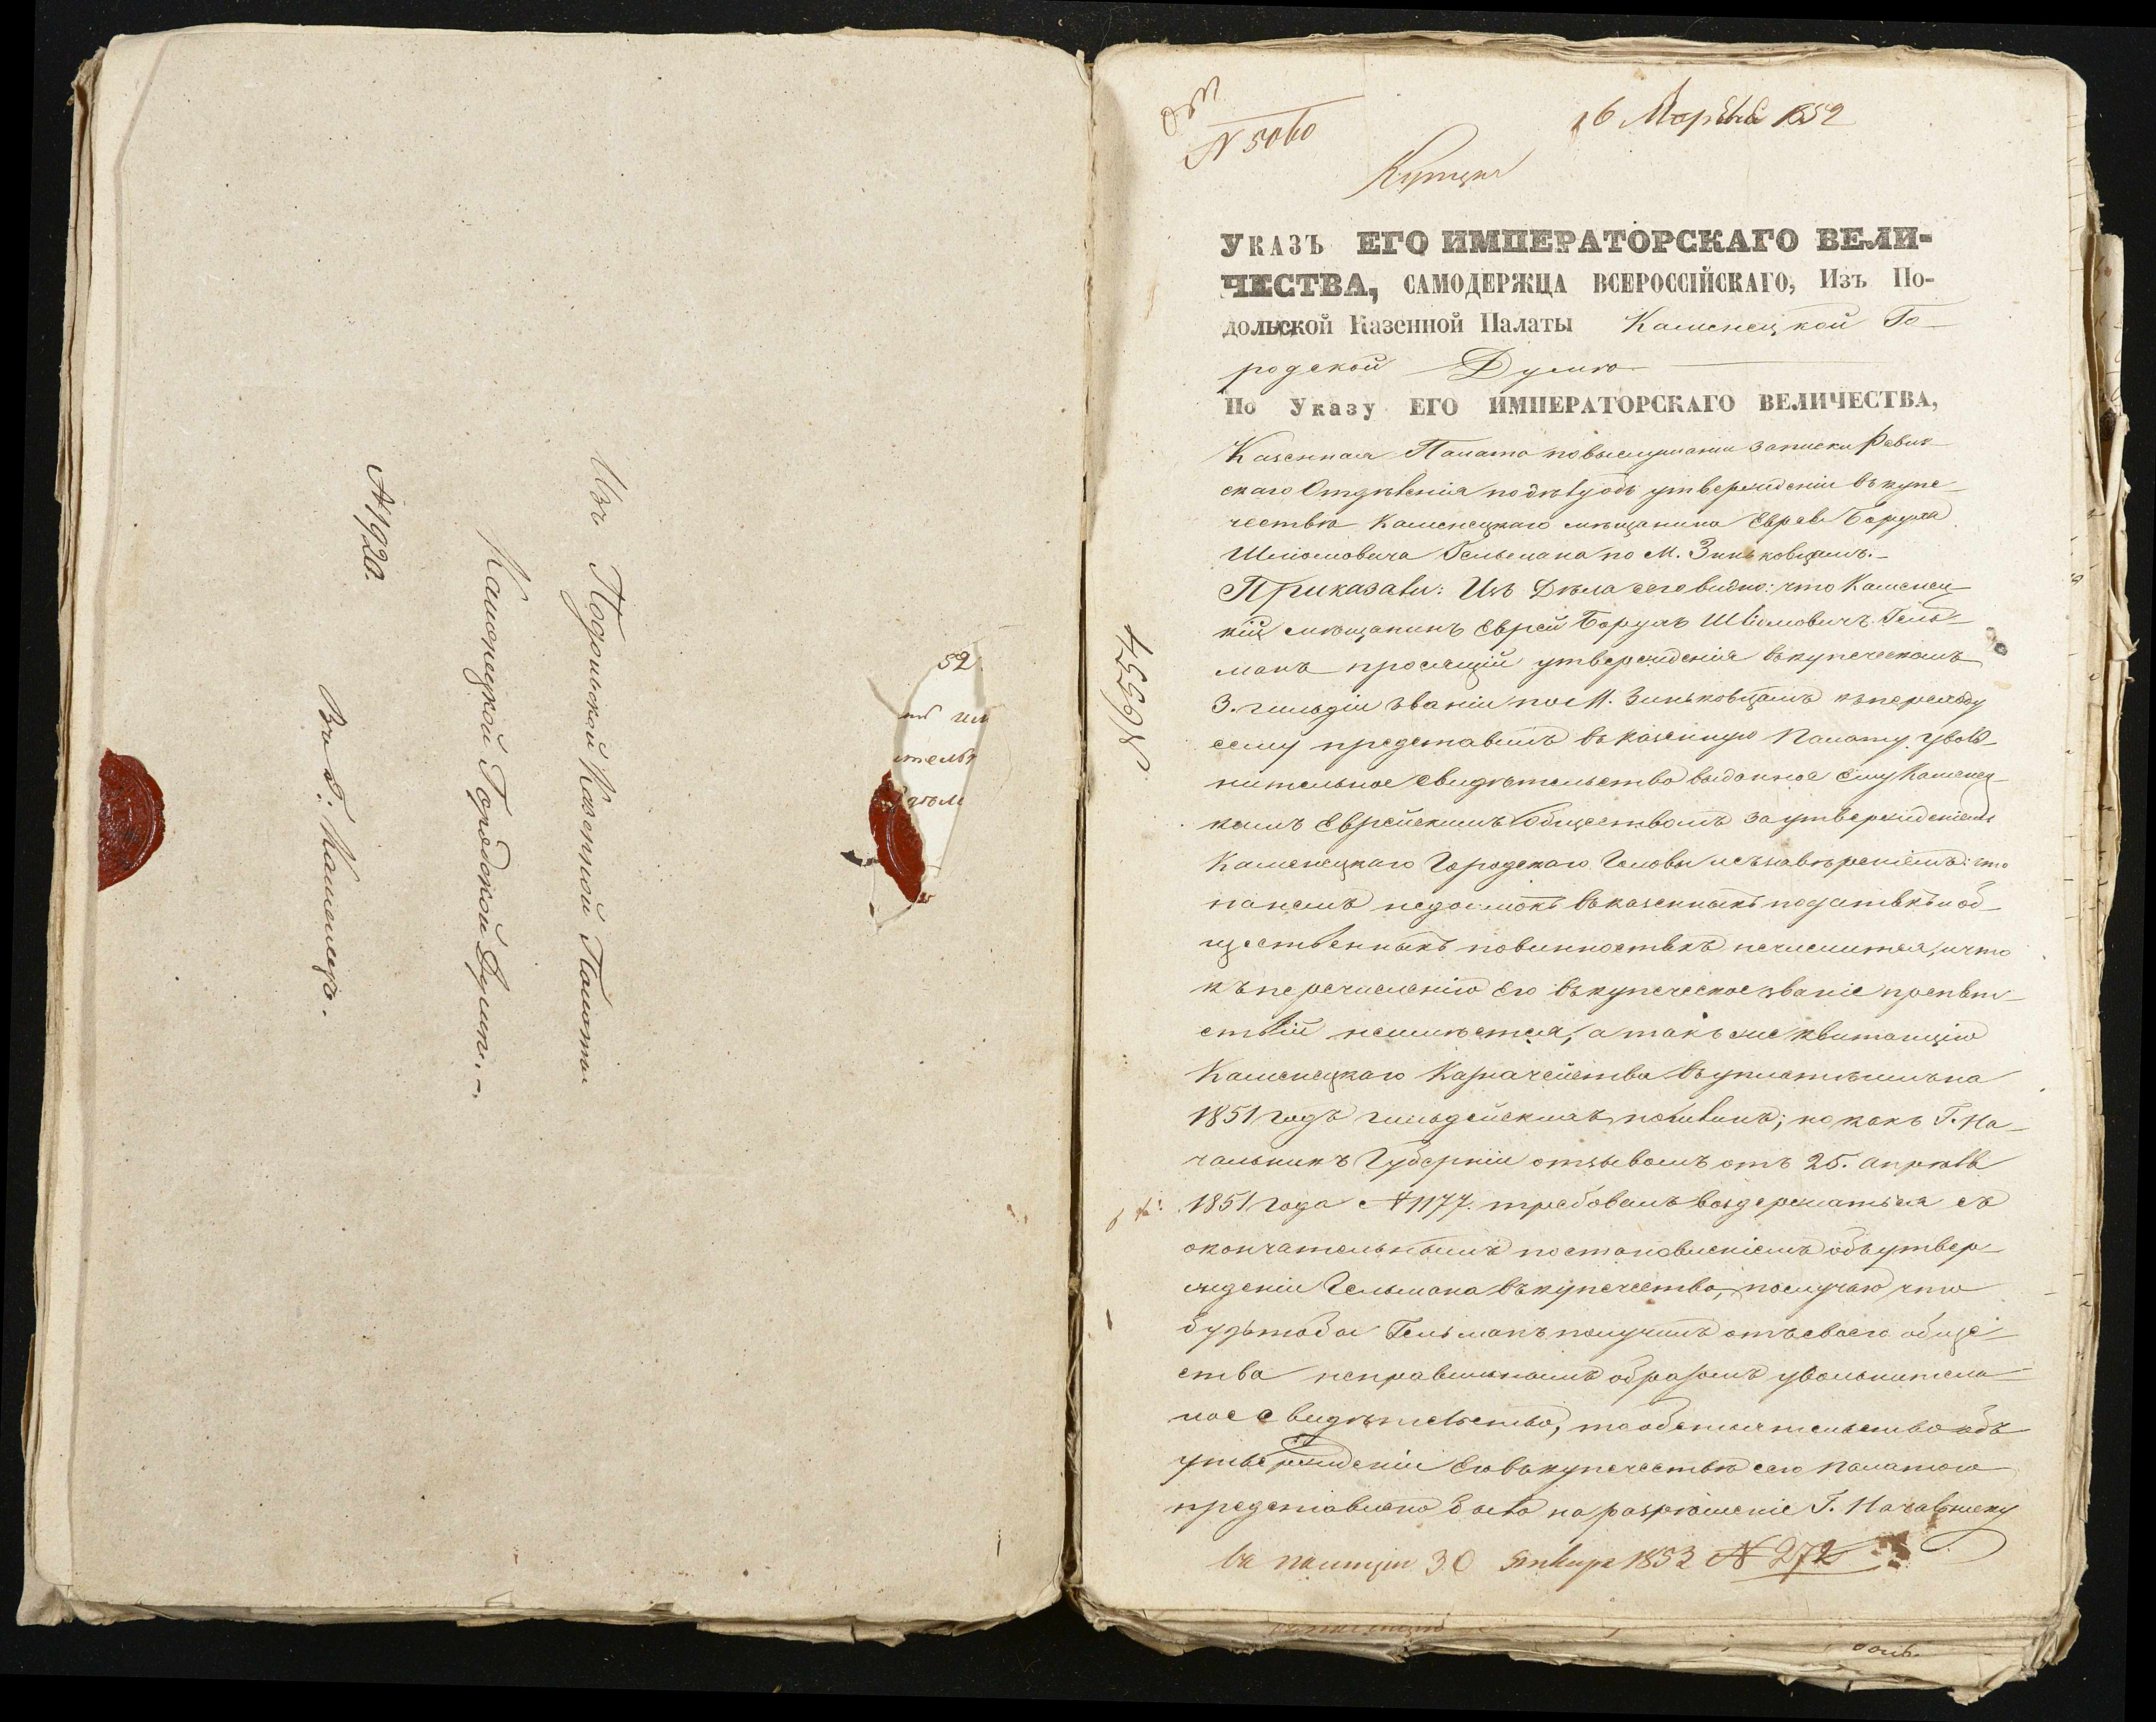 Изъ Подольской Казенной Палаты
Каменецкой Городской Думѣ.-
№ 1920.
Въ г: Каменецъ.
52
тель
№ 5060
16 Марта 1852
Купцы
УКАЗЪ ЕГО ИМПЕРАТОРСКАГО ВЕЛИ-
ЧЕСТВА, САМОДЕРЖЦА ВСЕРОССІЙСКАГО, Изъ По-
дольской Казенной Палаты Каменецкой Го-
родской Думѣ
По Указу ЕГО ИМПЕРАТОРСКАГО ВЕЛИЧЕСТВА,
Казенная Палата по выслушаніи записки Ревиж-
скаго Отдѣленія по дѣлу объ утвержденіи въ купе-
чествѣ Каменецкаго мѣщанина Еврея Боруха
Шліомовича Гельмана по М. Зиньковцамъ.-
Приказали: Изъ Дѣла сего видно: что Каменец-
кій мѣщанинъ Еврей Борухъ Шліомовичъ Гель-
манъ просящій утвержденія въ купеческомъ
3. гильдіи званіи по М. Зиньковцамъ къ переходу
сему представилъ въ Казенную Палату уволь-
нительное свидѣтельство выданное ему Каменец-
кимъ Еврейскимъ Обществомъ за утвержденіемъ
Каменецкаго Городскаго Головы и съ завѣреніемъ: что
на немъ недоимокъ въ казенныхъ податяхъ и об-
щественныхъ повинностяхъ нечислится, и что
къ перечисленію его въ купеческое званіе препят-
ствій неимѣется, а также квитанцію
Каменецкаго Казначейства въ уплатѣ имъ на
1851 годъ гильдейскихъ пошлинъ; но какъ Г. На-
чальникъ Губерніи отзывомъ отъ 25. Апрѣля
1851 года № 1177. требовалъ воздержаться съ
окончательнымъ постановленіемъ объ утвер-
жденіи Гельмана въ купечество, по случаю что
будьтобы Гельманъ получилъ отъ своего обще-
ства неправильнымъ образомъ увольнитель-
ное свидѣтельство, то обстоятельство объ
утвержденіи его въ купечествѣ сею Палатою
представлено было на разрѣшеніе Г. Начальнику
въ полицiи 30 Января 1853 № 272